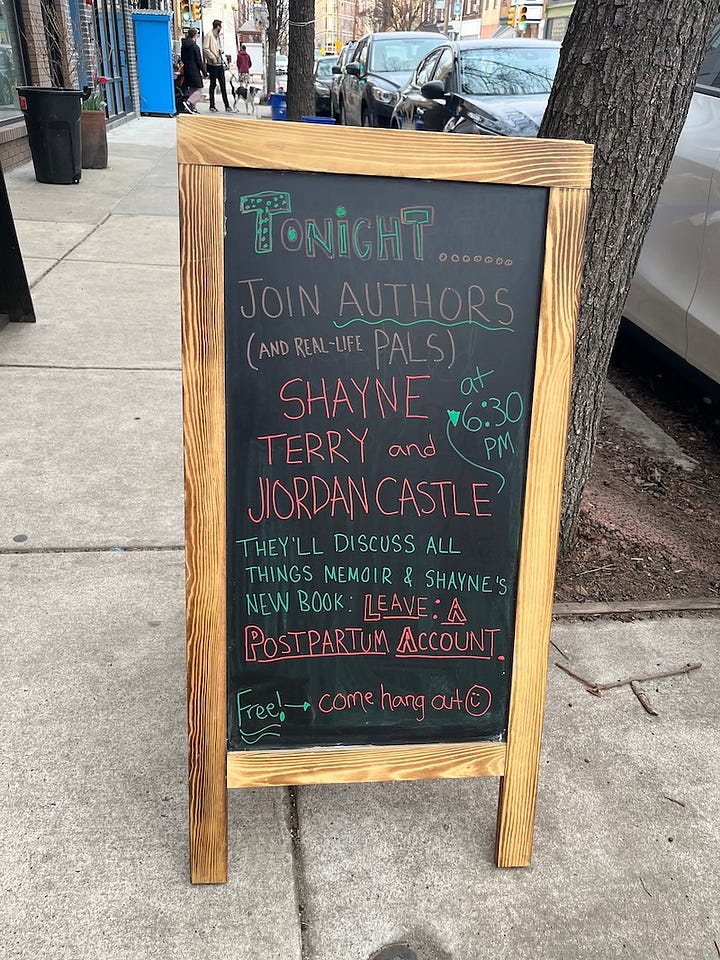 TONIGHT.......
JOIN AUTHORS
(AND REAL-LIFE PALS)
SHAYNE
TERRY and
JIORDAN CASTLE
at
6:30
PM
THEY'LL DISCUSS ALL
THINGS MEMOIR & SHAYNE'S
NEW BOOK: LEAVE: A
POSTPARTUM ACCOUNT.
Free!→ come hang out☺